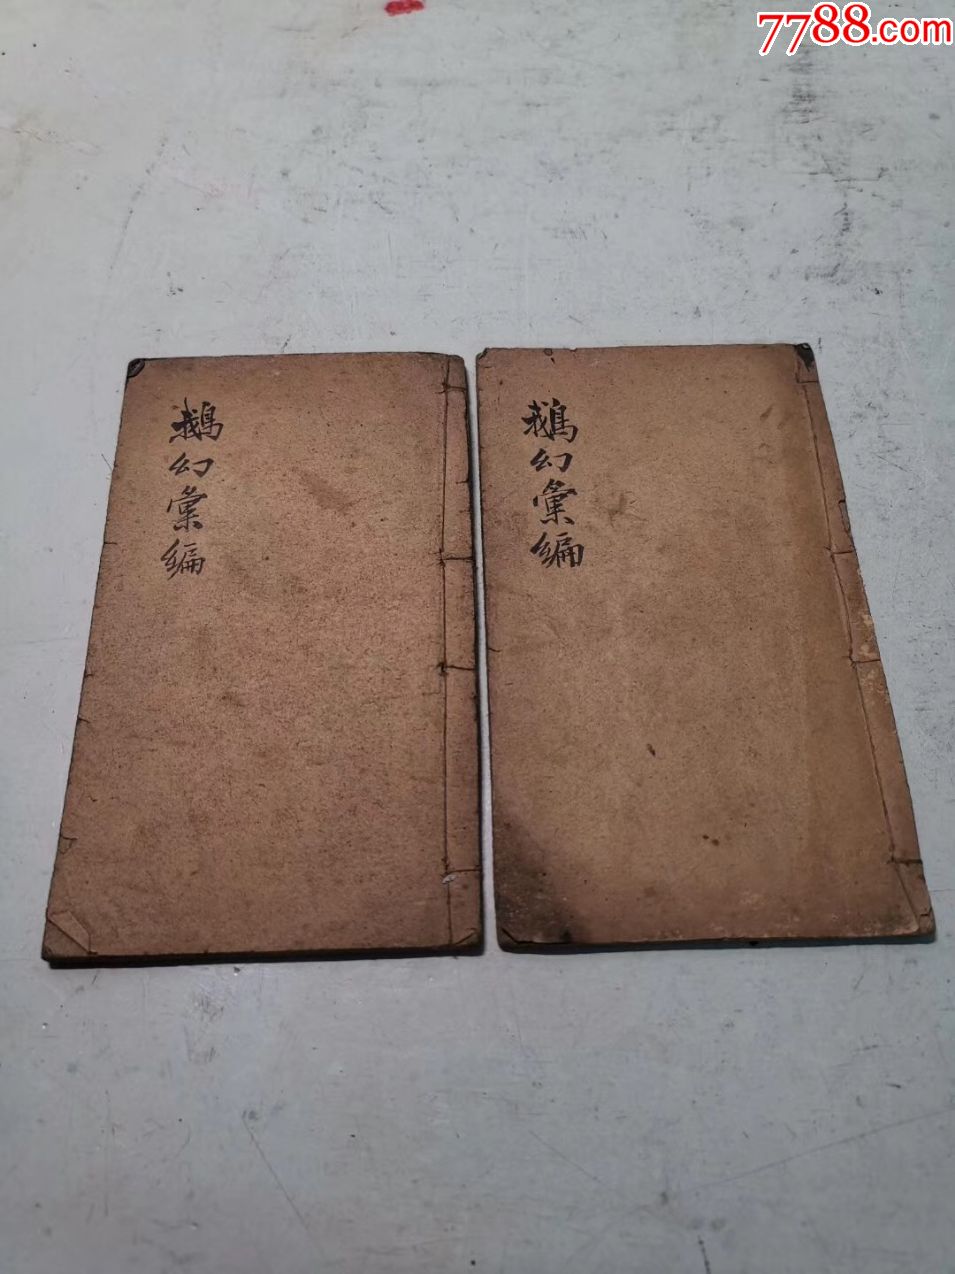 7788.com
鵝幻彙编
鵝幻彙编